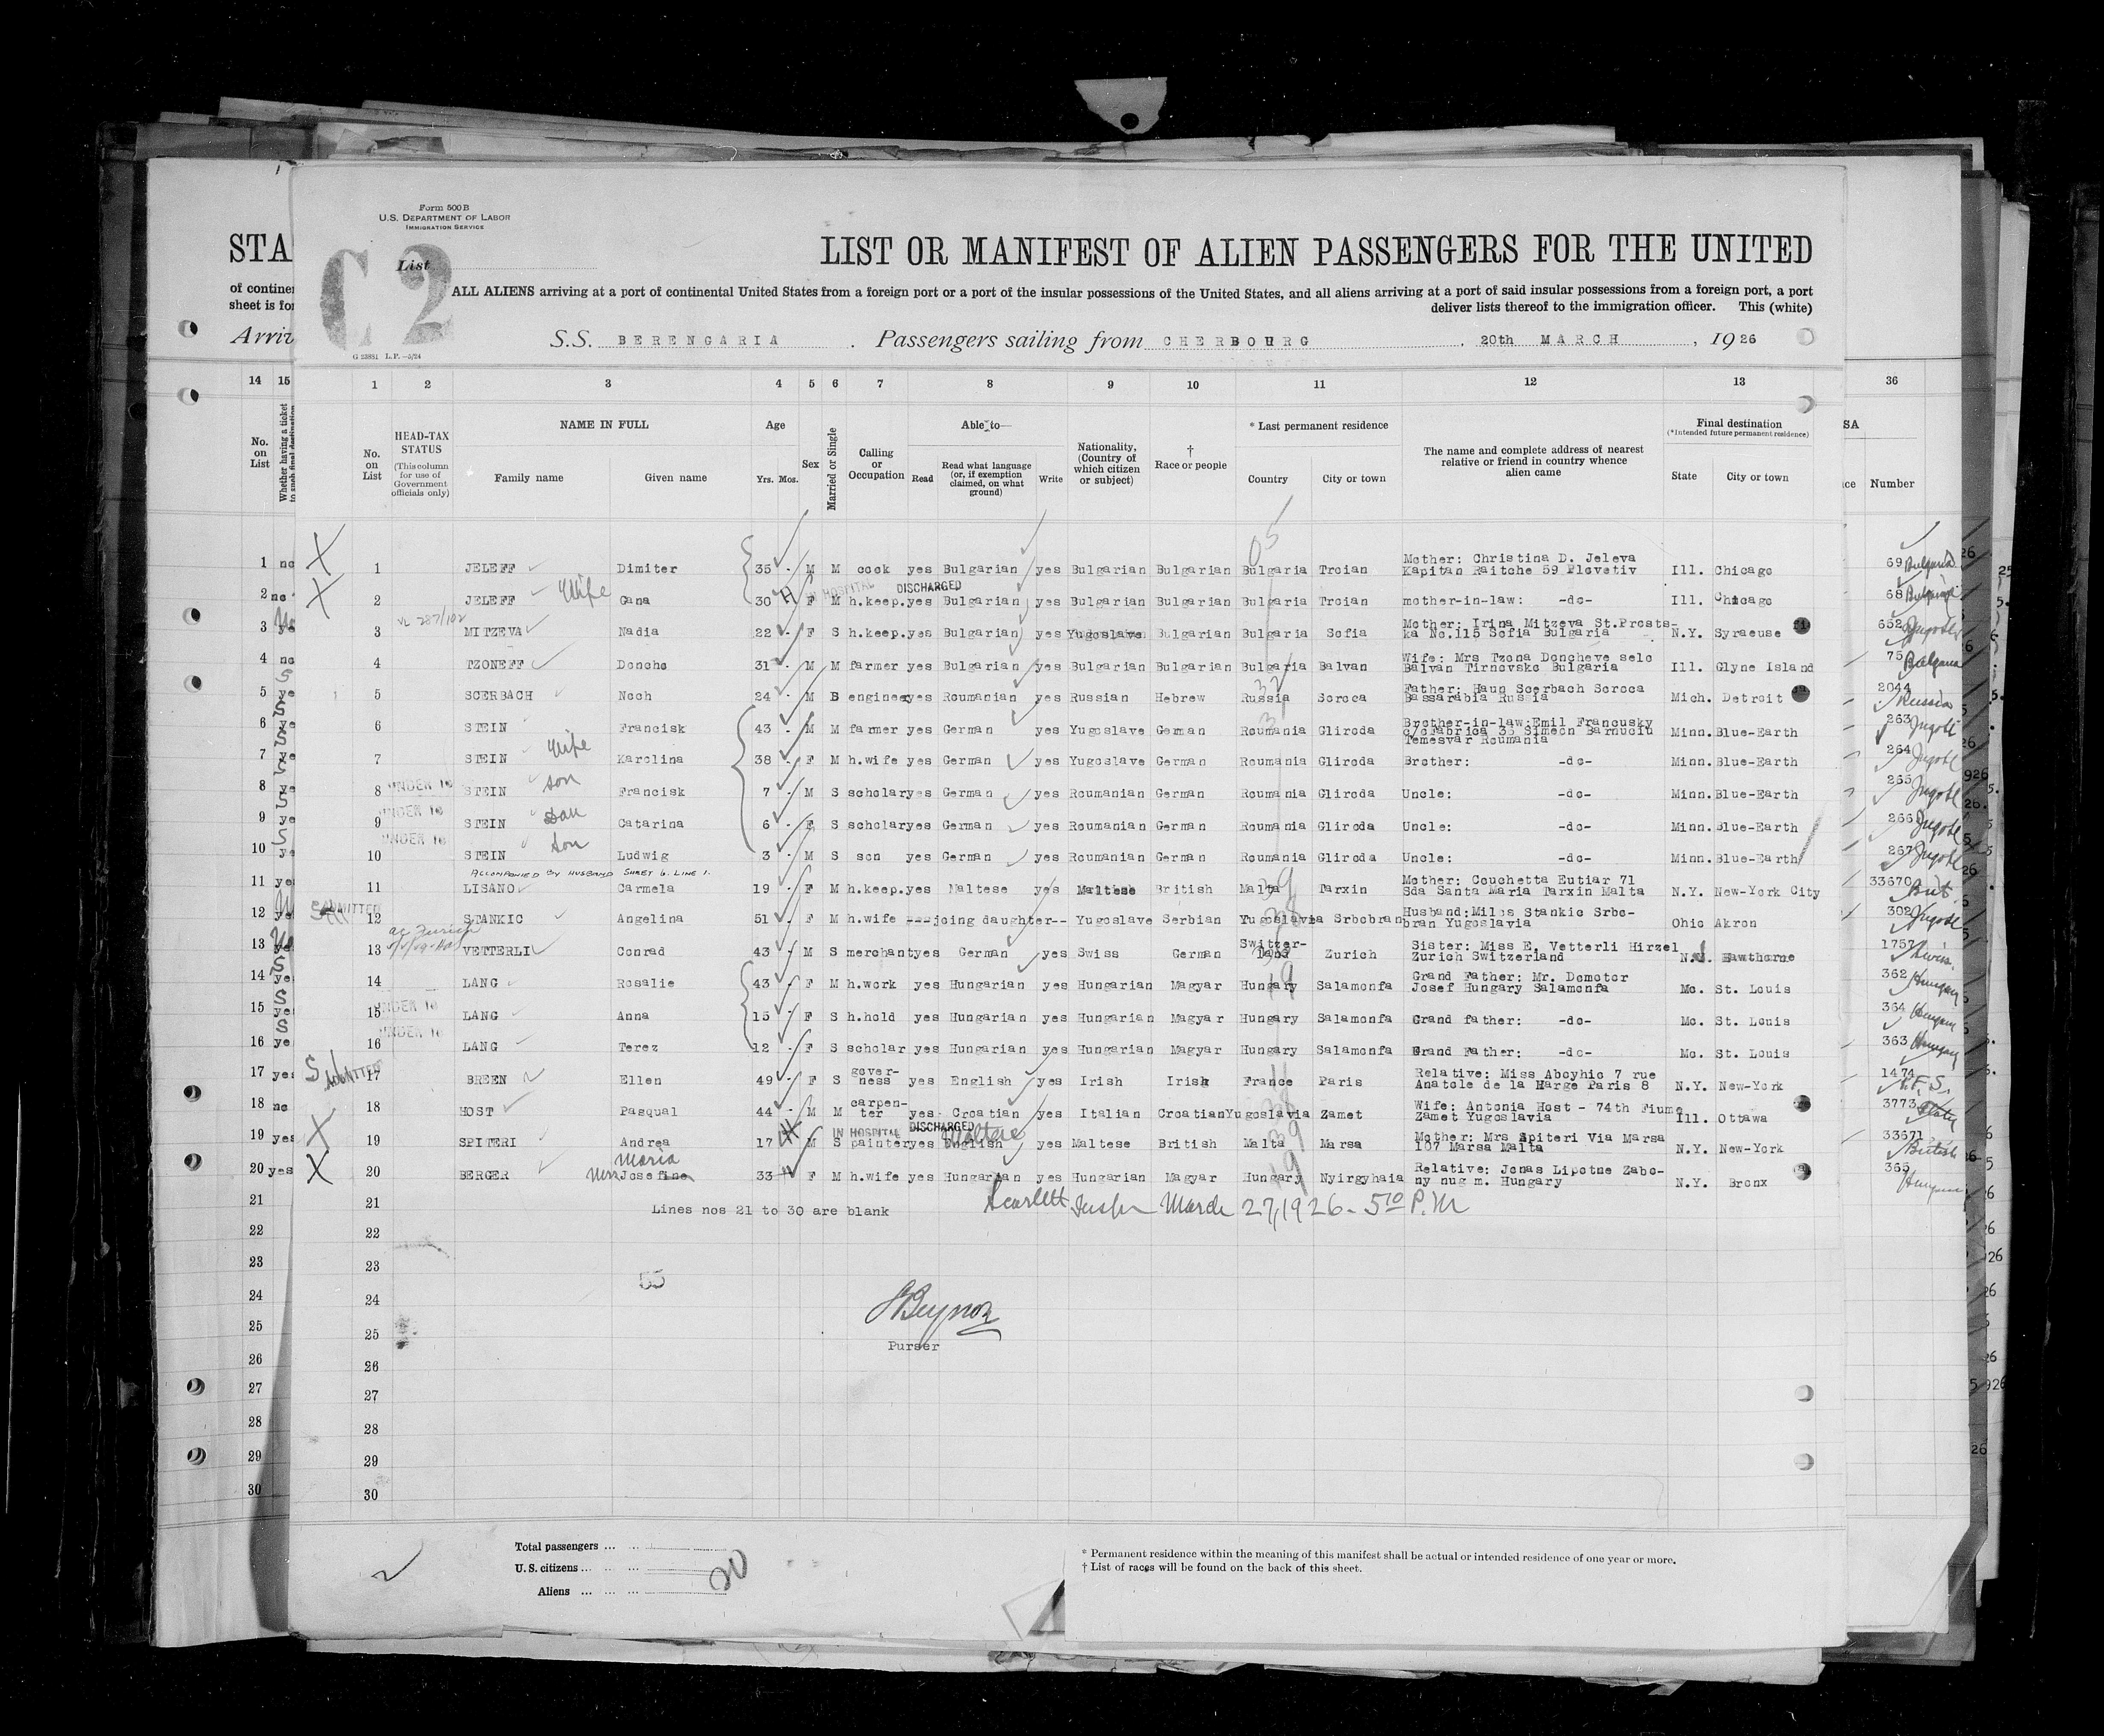 Form 500 B
U.S. DEPARTMENT OF LABOR
IMMIGRATION SERVICE
STA
LIST OR MANIFEST OF ALIEN PASSENGERS FOR THE UNITED
C 2
List
of contine
sheet is for
ALL ALIENS arriving at a port of continental United States from a foreign port or a port of the insular possessions of the United States, and all aliens arriving at a port of said insular possessions from a foreign port, a port
deliver lists thereof to the immigration officer. This (white)
Arriv
S.S. BERENGARIA . Passengers sailing from CHERBOURG , 20th MARCH , 19 26
G 23881 L.P.—5/24
14 15 1 2 3 4 5 6 7 8 9 10 11 12 13 36
No. on List
Whether having a ticket to such final destination
No. on List
HEAD-TAX STATUS
(This column for use of Government officials only)
NAME IN FULL
Family name
Given name
Age
Yrs. Mos.
Sex
Married or Single
Calling or Occupation
Able to—
Read
Read what language (or, if exemption claimed, on what ground)
Write
Nationality, (Country of which citizen or subject)
† Race or people
* Last permanent residence
Country
City or town
The name and complete address of nearest relative or friend in country whence alien came
Final destination
(*Intended future permanent residence)
State
City or town
SA
ce Number
05
1 no X 1 JELEFF Dimiter 35 - M M cook yes Bulgarian yes Bulgarian Bulgarian Bulgaria Troian Mother: Christina D. Jeleva Kapitan Raitche 59 Plovetiv Ill. Chicago 69 Bulgaria
2 no X 2 JELEFF Wife Gana 30 H IN HOSPITAL DISCHARGED F M h.keep. yes Bulgarian yes Bulgarian Bulgarian Bulgaria Troian mother-in-law: -do- Ill. Chicago 68 Bulgaria
3 ye VL 287/102 3 MITZEVA Nadia 22 - F S h.keep. yes Bulgarian yes Yugoslave Bulgarian Bulgaria Sofia Mother: Irina Mitzeva St.Prosts- ka No.115 Sofia Bulgaria N.Y. Syraeuse 652 Jugosl
4 no 4 TZONEFF Doncho 31 - M M farmer yes Bulgarian yes Bulgarian Bulgarian Bulgaria Balvan Wife: Mrs Tzona Doncheve selo Balvan Tirnovsko Bulgaria Ill. Glyne Island 75 Bulgaria
5 ye 5 SCERBACH Noch 24 - M B engineer yes Roumanian yes Russian Hebrew Russia Soroca Father: Haun Scerbach Soroca Bassarabia Russia Mich. Detroit 2044 Russia
6 ye 6 STEIN Francisk 43 - M M farmer yes German yes Yugoslave German Roumania Giroda Brother-in-law:Emil Francusky c/oFabrica 35 Simeon Barnuciu Temesvar Roumania Minn. Blue-Earth 263 Jugosl
7 ye 7 STEIN Wife Karolina 38 - F M h.wife yes German yes Yugoslave German Roumania Gliroda Brother: -do- Minn. Blue-Earth 264 Jugosl
8 ye UNDER 16 8 STEIN son Francisk 7 - M S scholar yes German yes Roumanian German Roumania Gliroda Uncle: -do- Minn. Blue-Earth 265 Jugosl
9 ye UNDER 16 9 STEIN Dau Catarina 6 - F S scholar yes German yes Roumanian German Roumania Gliroda Uncle: -do- Minn. Blue-Earth 266 Jugosl
10 ye UNDER 16 10 STEIN Son Ludwig 3 - M S son yes German yes Roumanian German Roumania Gliroda Uncle: -do- Minn. Blue-Earth 267 Jugosl
ACCOMPONIED BY HUSBAND SHEET 6. LINE 1.
11 yes 11 LISANO Carmela 19 - F M h.keep. yes Maltese yes Maltese British Malta Tarxin Mother: Couchetta Eutiar 71 Sda Santa Maria Tarxin Malta N.Y. New-York City 33670 Brit.
12 ye ADMITTED 12 STANKIC Angelina 51 - F M h.wife ---joing daughter-- Yugoslave Serbian Yugoslavia Srbobran Husband:Miles Stankic Srbo- bran Yugoslavia Ohio Akron 302 Jugosl
13 ye 13 VETTERLI Conrad 43 - M S merchant yes German yes Swiss German Switzer- land Zurich Sister: Miss E. Vetterli Hirzel Zurich Switzerland N.J. Hawthorne 1757 Swiss.
14 yes 14 LANG Rosalie 43 - F M h.work yes Hungarian yes Hungarian Magyar Hungary Salamonfa Grand Father: Mr. Domotor Josef Hungary Salamonfa Mo. St. Louis 362 Hungary
15 yes UNDER 16 15 LANG Anna 15 - F S h.hold yes Hungarian yes Hungarian Magyar Hungary Salamonfa Grand father: -do- Mo. St. Louis 364 Hungary
16 ye UNDER 16 16 LANG Terez 12 - F S scholar yes Hungarian yes Hungarian Magyar Hungary Salamonfa Grand Father: -do- Mo. St. Louis 363 Hungary
17 yes S ADMITTED 17 BREEN Ellen 49 - F S gover- ness yes English yes Irish Irish France Paris Relative: Miss Aboyhic 7 rue Anatole de la Harge Paris 8 N.Y. New-York 1474 I.F.S.
18 no 18 HOST Pasqual 44 - M M carpen- ter yes Croatian yes Italian Croatian Yugoslavia Zamet Wife: Antonia Host - 74th Fiume Zamet Yugoslavia Ill. Ottawa 3773 Italy
19 yes X 19 SPITERI Andrea 17 IN HOSPITAL DISCHARGED M S painter yes English Maltese yes Maltese British Malta Marsa Mother: Mrs Spiteri Via Marsa 107 Marsa Malta N.Y. New-York 33671 British
20 yes X 20 BERGER Maria Mrs Josefine 33 - F M h.wife yes Hungarian yes Hungarian Magyar Hungary Nyirgyhaia Relative: Jonas Lipotne Zabo- ny nug m. Hungary N.Y. Bronx 365 Hungary
21 21 Lines nos 21 to 30 are blank Scarlett Insp March 27, 1926 - 5 10 P.M
22 22
23 23
55
24 24
25 25
Purser
26 26
27 27
28 28
29 29
30 30
Total passengers ... ...
U.S. citizens ... ... ...
Aliens ... ... ...
20
* Permanent residence within the meaning of this manifest shall be actual or intended residence of one year or more.
† List of races will be found on the back of this sheet.